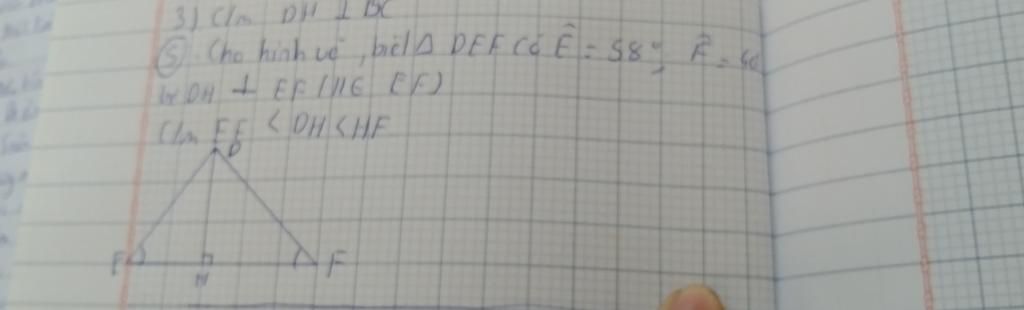 3) C/m DH ⊥ BC
⑤. Cho hình vẽ, biết Δ DEF có Ê = 58°, F̂ =
DH ⊥ EF (H ∈ EF)
C/m EF < DH < HF
D
H
F